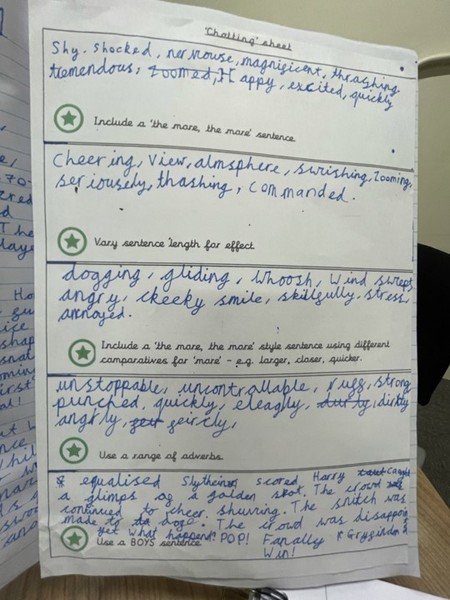 'Chatting' sheet
Shy. shocked, nervouse, magnigicent, thrashing.
tremendous, Zoomed, Happy, excited, quickly
Include a 'the more, the more' sentence.
Cheering, View, atmsphere, swishing, Zooming,
seriousely, thashing, commanded.
Vary sentence length for effect.
dogging, gliding, Whoosh, Wind sweeps
angry, cheeky smile, skilgully. stress,
annoyed.
Include a 'the more, the more' style sentence using different
comparatives for 'more' - e.g. larger, closer, quicker.
unstoppable, uncontrollable, ruff, strong
punched, quickly, eleaghly, dirkty
angrly geircly,
Use a range of adverbs.
equalised Slytherin scored Harry Caught
a glimps og a golden shot. The crowd
continued to cheer. The snitch was
made to doge. The crowd was disappoin
yet What happend? POP! Fanally Grygindor
Use a BOYS sentence Win!